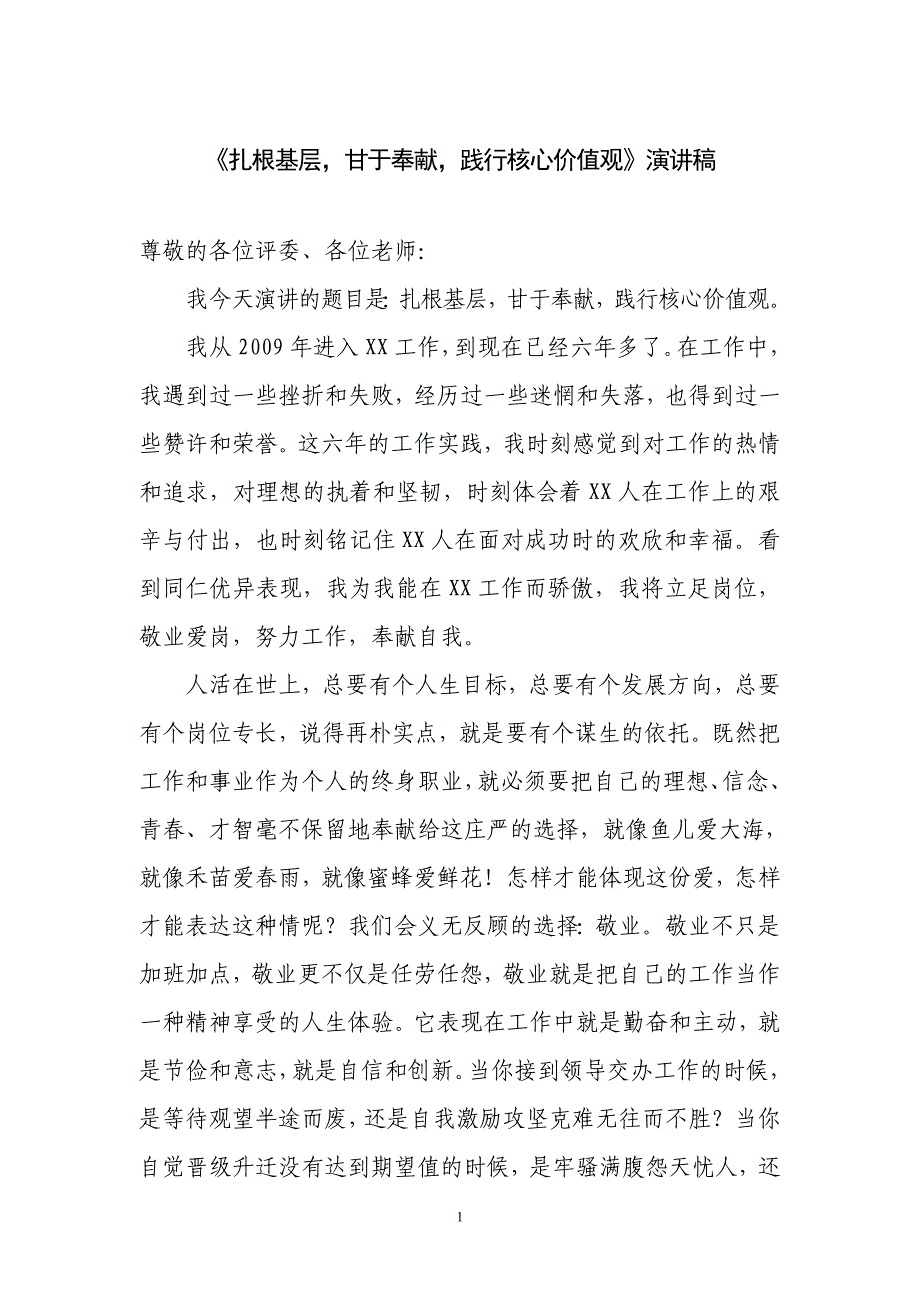 《扎根基层，甘于奉献，践行核心价值观》演讲稿
尊敬的各位评委、各位老师：
我今天演讲的题目是：扎根基层，甘于奉献，践行核心价值观。
我从 2009 年进入 XX 工作，到现在已经六年多了。在工作中，
我遇到过一些挫折和失败，经历过一些迷惘和失落，也得到过一
些赞许和荣誉。这六年的工作实践，我时刻感觉到对工作的热情
和追求，对理想的执着和坚韧，时刻体会着 XX 人在工作上的艰
辛与付出，也时刻铭记住 XX 人在面对成功时的欢欣和幸福。看
到同仁优异表现，我为我能在 XX 工作而骄傲，我将立足岗位，
敬业爱岗，努力工作，奉献自我。
人活在世上，总要有个人生目标，总要有个发展方向，总要
有个岗位专长，说得再朴实点，就是要有个谋生的依托。既然把
工作和事业作为个人的终身职业，就必须要把自己的理想、信念、
青春、才智毫不保留地奉献给这庄严的选择，就像鱼儿爱大海，
就像禾苗爱春雨，就像蜜蜂爱鲜花！怎样才能体现这份爱，怎样
才能表达这种情呢？我们会义无反顾的选择：敬业。敬业不只是
加班加点，敬业更不仅是任劳任怨，敬业就是把自己的工作当作
一种精神享受的人生体验。它表现在工作中就是勤奋和主动，就
是节俭和意志，就是自信和创新。当你接到领导交办工作的时候，
是等待观望半途而废，还是自我激励攻坚克难无往而不胜？当你
自觉晋级升迁没有达到期望值的时候，是牢骚满腹怨天忧人，还
1